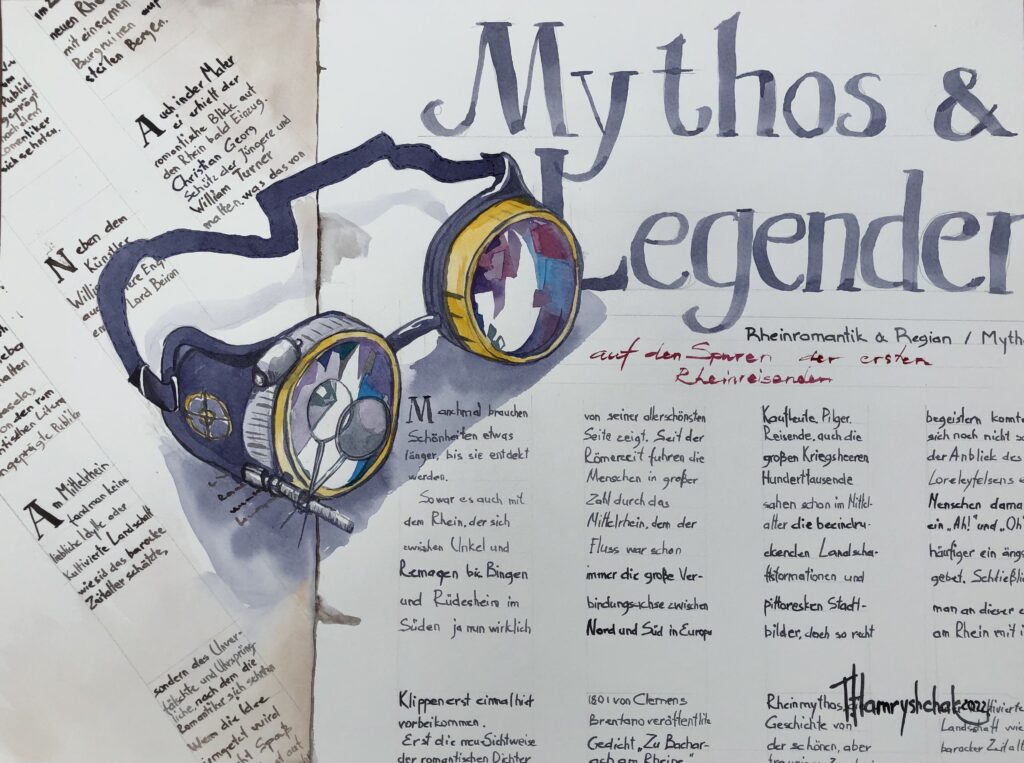 Mythos &
Legenden
Rheinromantik & Region / Myth
auf den Spuren der ersten
Rheinreisenden
neuen Rhe
mit einsamen
Burgruinen auf
steilen Bergen.
Auch in der Maler
ei erhielt der
romantische Blick auf
den Rhein bald Einzug.
Christian Georg
Schütz der Jüngere und
William Turner
malten, was das von
Neben dem
Künstler
Lord Beiron
Am Mittelrhein
fand man keine
liebliche Idylle oder
Kultivierte Landschaft
wie sid das barocke
Zeitalter schätzte,
sondern das Unver-
fälschte und Uhrspring
liche, nach dem die
Romantiker sich sehnten
Wem die Idee
Manchmal brauchen
Schönheiten etwas
länger, bis sie entdekt
werden.
So war es auch mit
dem Rhein, der sich
zwishen Unkel und
Remagen bis Bingen
und Rüdesheim im
Süden ja nun wirklich
Klippen erst einmal hit
vorbeikommen.
Erst die neu-Sichtweise
der romantischen Dichter
von seiner allerschönsten
Seite zeigt. Seit der
Römerzeit fuhren die
Menschen in großer
Zahl durch das
Mittelrhein, dem der
Fluss war schon
immer die große Ver-
bindungsachse zwischen
Nord und Süd in Europa
1801 von Clemens
Brentano veröffentlite
Gedicht „Zu Bachar-
ach am Rheine"
Kaufleute, Pilger,
Reisende, auch die
großen Kriegsheeren
Hunderttausende
sahen schon im Mittel-
alter die beeindru-
ckenden Landscha-
ftsformationen und
pittoresken Stadt-
bilder, doch so recht
Rheinmythos,
Geschichte von
der schönen, aber
begeistern konnte
sich noch nicht
der Anblick des
Loreleyfelsens
Menschen dama
ein „Ah!" und „Oh
häufiger ein ängs
gebet. Schließli
man an dieser
am Rhein mit
Landschaft wie
barocker Zeitalt
THamryshchak 2022